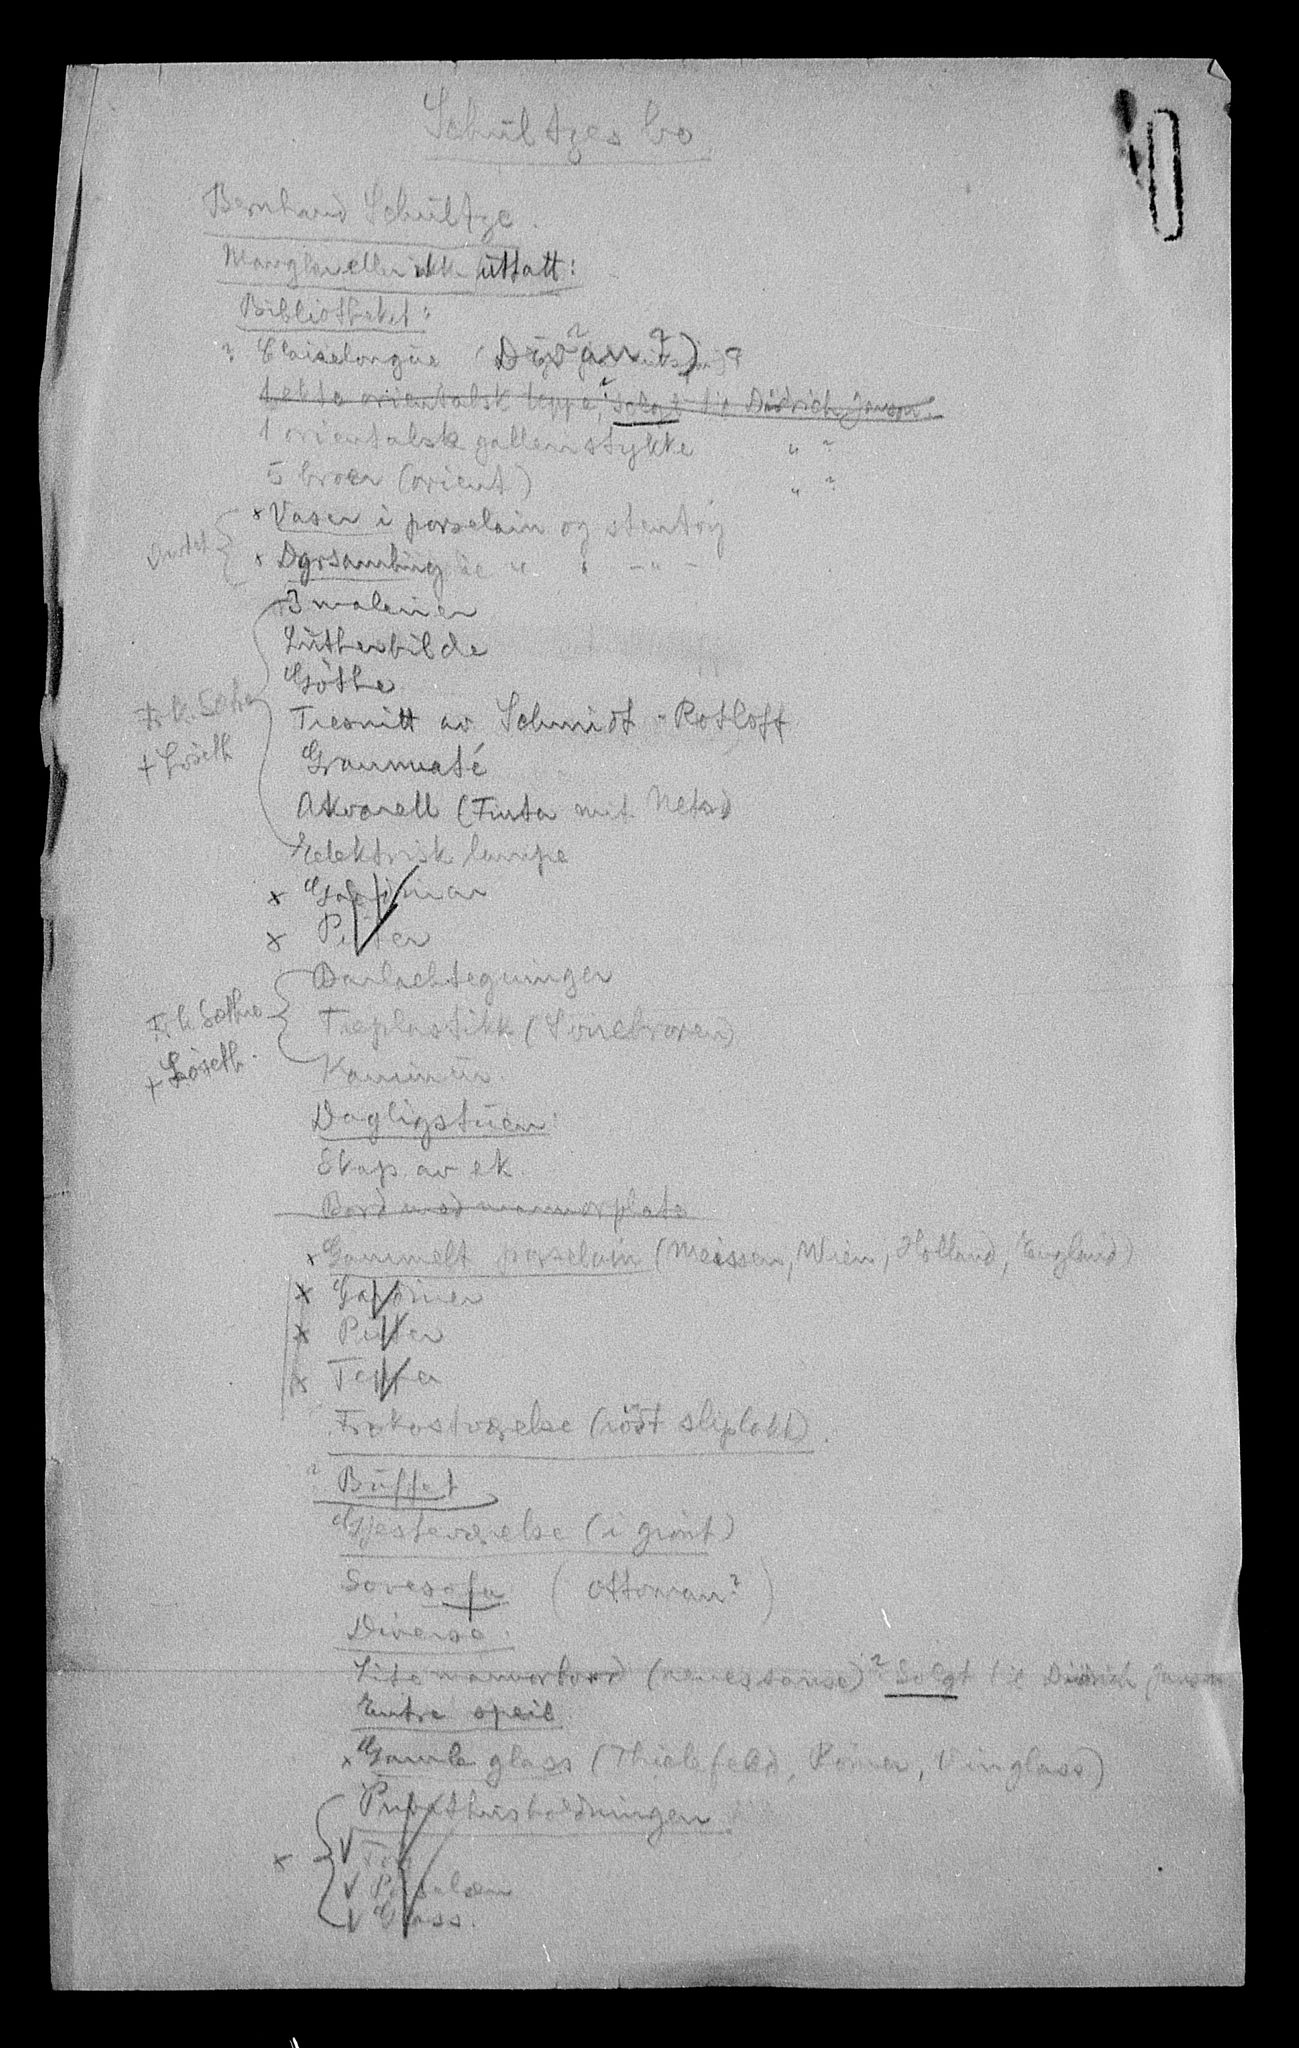 Schültzes bo.
Bernhard Schültze.
Mangler eller ikke üttatt:
Bibliotheket:
? Chaiselongue (Divan?) ?
1 ekte orientalsk teppe, solgt til Didrich Jenson.
1 orientalsk galleristykke " ?
5 broer (orient) " ?
x Vaser i porselain og stentöy
x Dyrsamling de " " - " -
3 malerier
Lütherbilde
Göthe
Tresnitt av Schmidt-Rotloff
Akvarell (Finta mit Netz)
Elektrisk lampe
Frk. Sethe
+ Löseth
x Gardiner
x Püter
Barlachtegninger
Treplastikk
Kaminür.
Frk. Sethe
+ Löseth.
Dagligstüen:
Skap av ek.
Bord med marmorplate
x Gammelt porselain (Meissen, Wien, Holland, England)
x Gardiner
x Püter
x Tepper
Frokostværelse (rödt sliplakk).
? Büffet
Gjesteværelse (i grönt)
Sovesofa (Ottoman?)
Diverse:
Lite marmorbord (renessanse)? Solgt til Didrich Jenson
Entre speil.
x Gamle glass (Thielefeld, Römer, Vinglass)
Privathüsholdningen.
x
Töy
Porselæn
Glass.